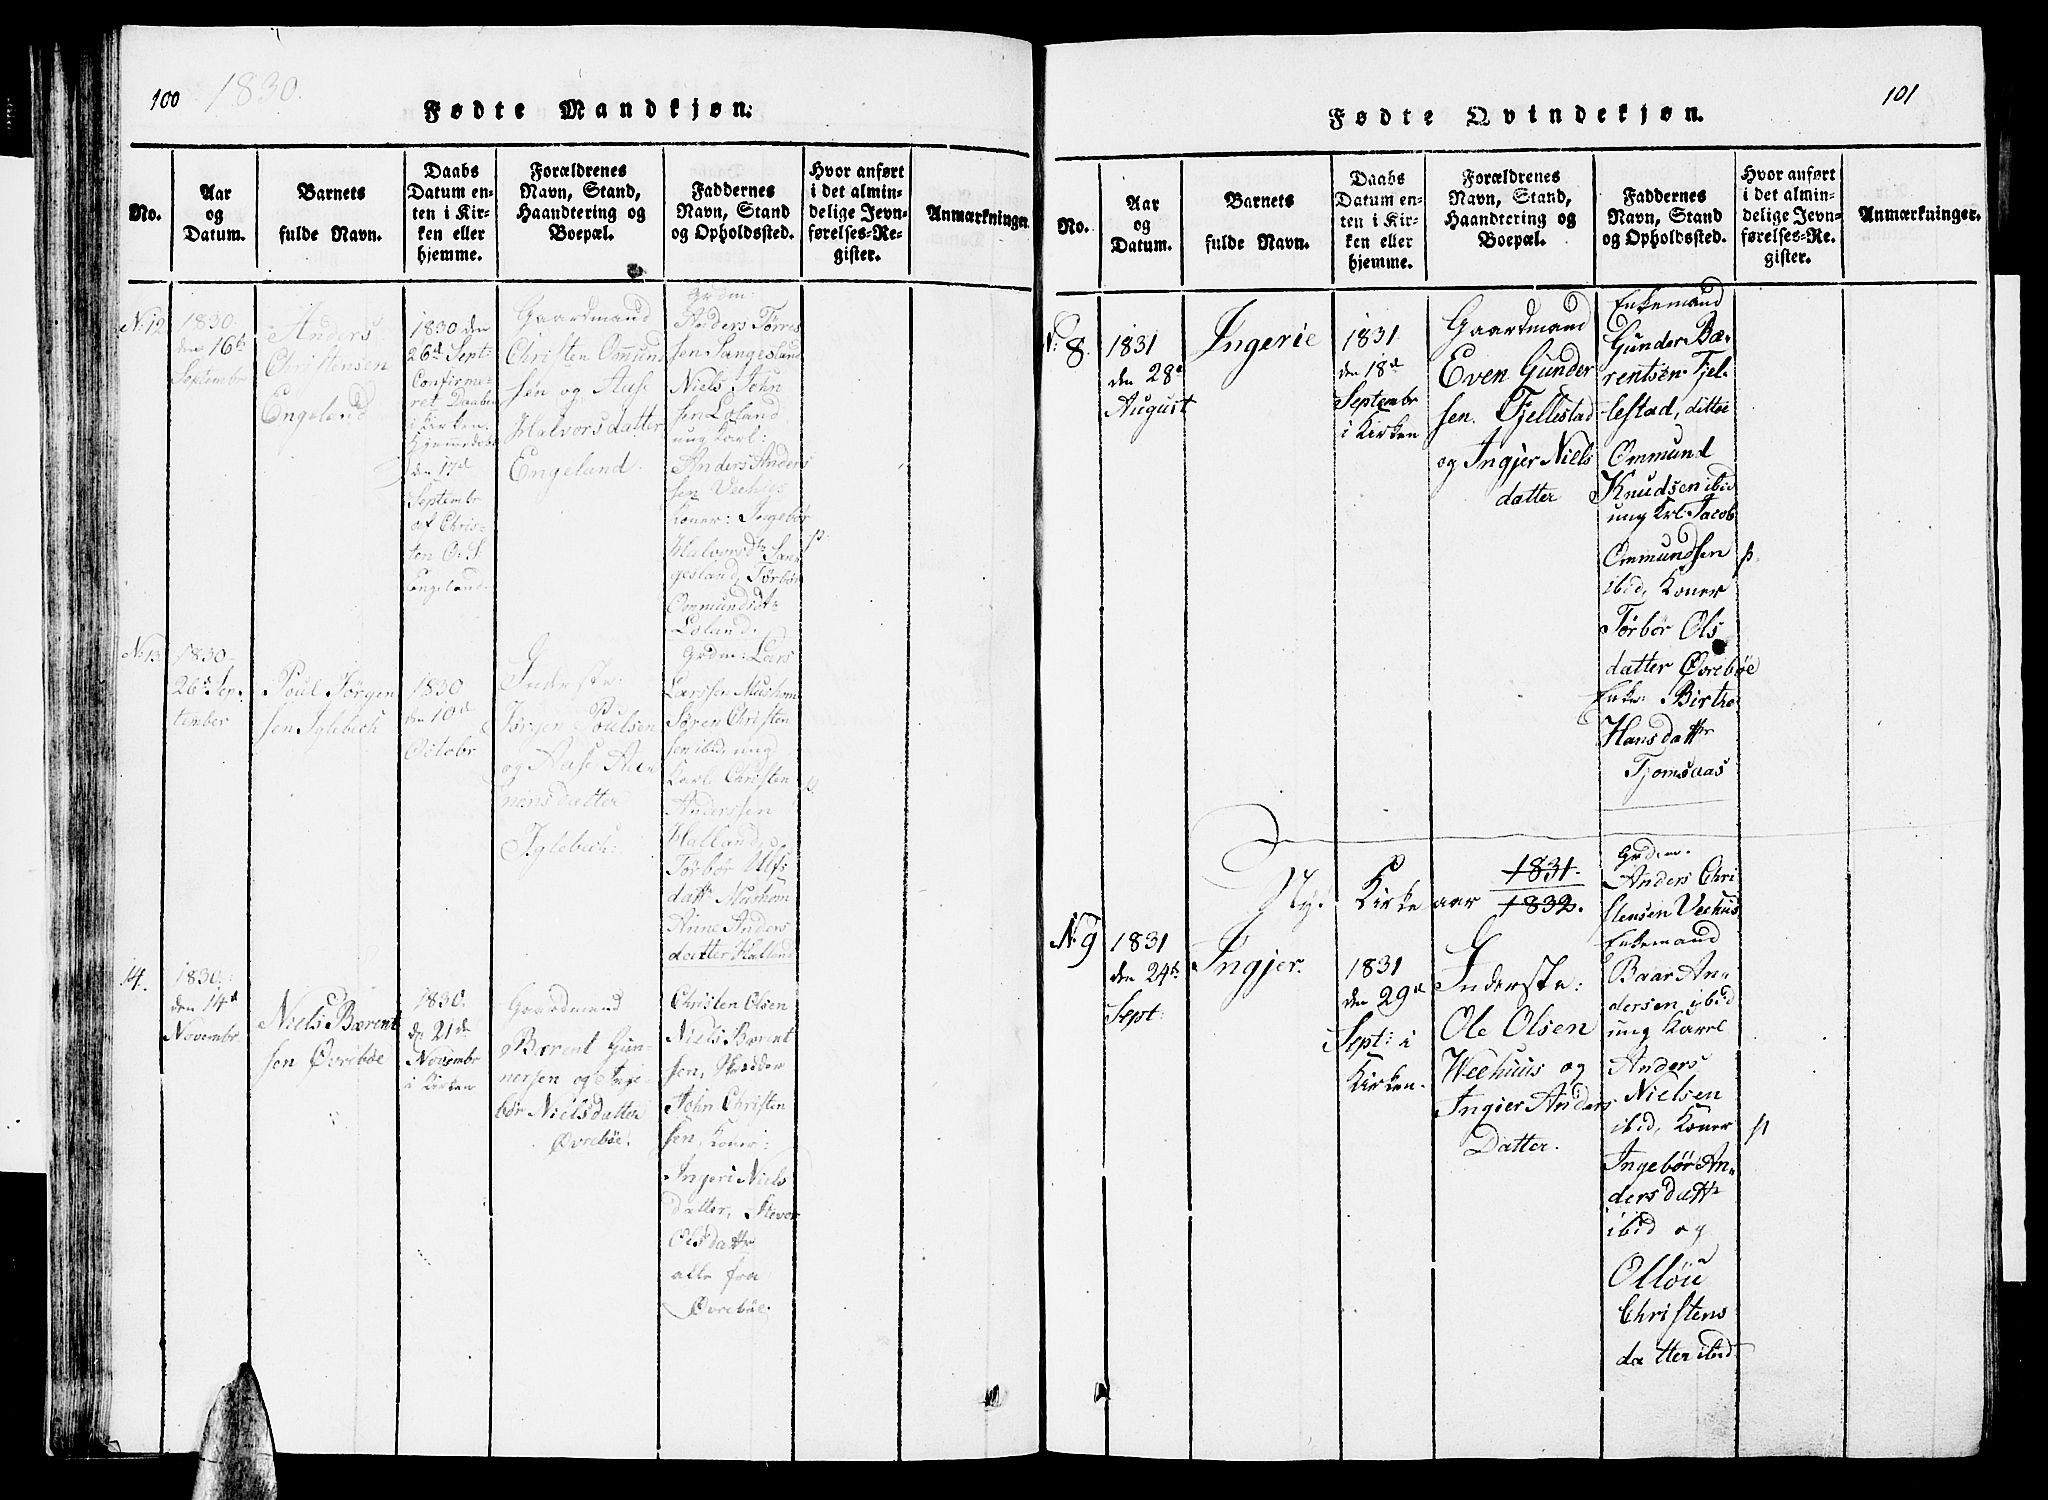 100 1830.
Fødte Mandkjøn.
No.
Aar
og
Datum.
Barnets
fulde Navn.
Daabs
Datum en-
ten i Kir-
ken eller
hjemme.
Forældrenes
Navn, Stand,
Haandtering og
Boepæl.
Faddernes
Navn, Stand
og Opholdssted.
Hvor anført
i det almin-
delige Jevn-
førelses-Re-
gister.
Anmærkninger
No 12
1830
den 16de
Septembr
Anders
Christensen
Engeland
1830 den
26d Sept:
Confirme-
ret Daaben
i Kirken.
Hjemmedøbt
d: 17d
Septembr
af Chris-
ten O. S.
Engeland.
Gaardmand
Christen Ommund
sen og Aase
Halvorsdatter
Engeland.
Grdm:
Anders Torres
sen Sangesland
Niels John
sen Loland
ung Karl:
Anders Anders
sen Veehus
Koner: Ingebør
Halvorsdtr San
gesland, Tørbør
Ommundsdtr
Loland.
p.
No 13
1830
26d Sep-
tember
Poul Jørgen
sen Iglebech
1830
den 10d
Octobr
Inderste:
Jørgen Poulsen
og Aase Aan
nonsdatter
Iglebech:
Grdm: Lars
Larssen Mushom
Søren Christen
sen ibid, ung
Karl Christen
Anderssen
Halland,
Tørbør Olufs
dattr Mushom
Anne Anders
datter Halland
p.
14.
1830.
den 14d
Novembr
Niels Bærent
sen Øvrebøe
1830.
d: 21de
Novembr
i Kirken
Gaardmand
Bærent Gun-
nersen og Inge-
bør Nielsdatter
Øvrebøe.
Christen Olsen
Niels Bærent
sen, Skrædder
John Christen
sen, Koner:
Ingeri Niels
datter,
Olsdattr
alle fra
Øvrebøe.
101
Fødte Qvindekjøn.
No.
Aar
og
Datum.
Barnets
fulde Navn.
Daabs
Datum en-
ten i Kir-
ken eller
hjemme.
Forældrenes
Navn, Stand,
Haandtering og
Boepæl.
Faddernes
Navn, Stand
og Opholdssted.
Hvor anført
i det almin-
delige Jevn-
førelses-Re-
gister.
Anmærkninger.
N: 8.
1831
den 28d
August
Ingerie
1831
den 18d
Septembr
i Kirken
Gaardmand
Even Gunder
sen Fjellestad
og Ingjer Niels
datter
Enkemand
Gunder Bæ-
rentsen Fjel-
lestad, ditto
Ommund
Knudsen ibid
ung Krl: Jacob
Ommundsen
ibid, Koner
Tørbør Ols
datter Øvrebøe
Enke: Birthe
Hansdattr
Tjomsaas
p.
Nyt Kirke aar 1831.
1832.
No 9
1831
den 24de
Sept:
Ingjer.
1831
den 29d
Sept: i
Kirken.
Inderste:
Ole Olsen
Weehuus og
Ingier Anders
Datter.
Grdm.
Anders Chri
stensen Veehus
Enkemand
Baar An-
dersen ibid
ung Karl
Anders
Nielsen
ibid, Koner
Ingebør An-
ders dattr
ibid og
Olløu
Christens
datter ibid.
p